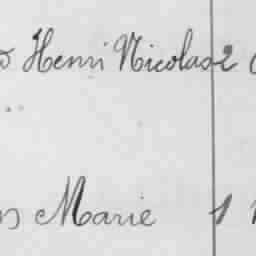 Henri Nicolas 2
Marie 1